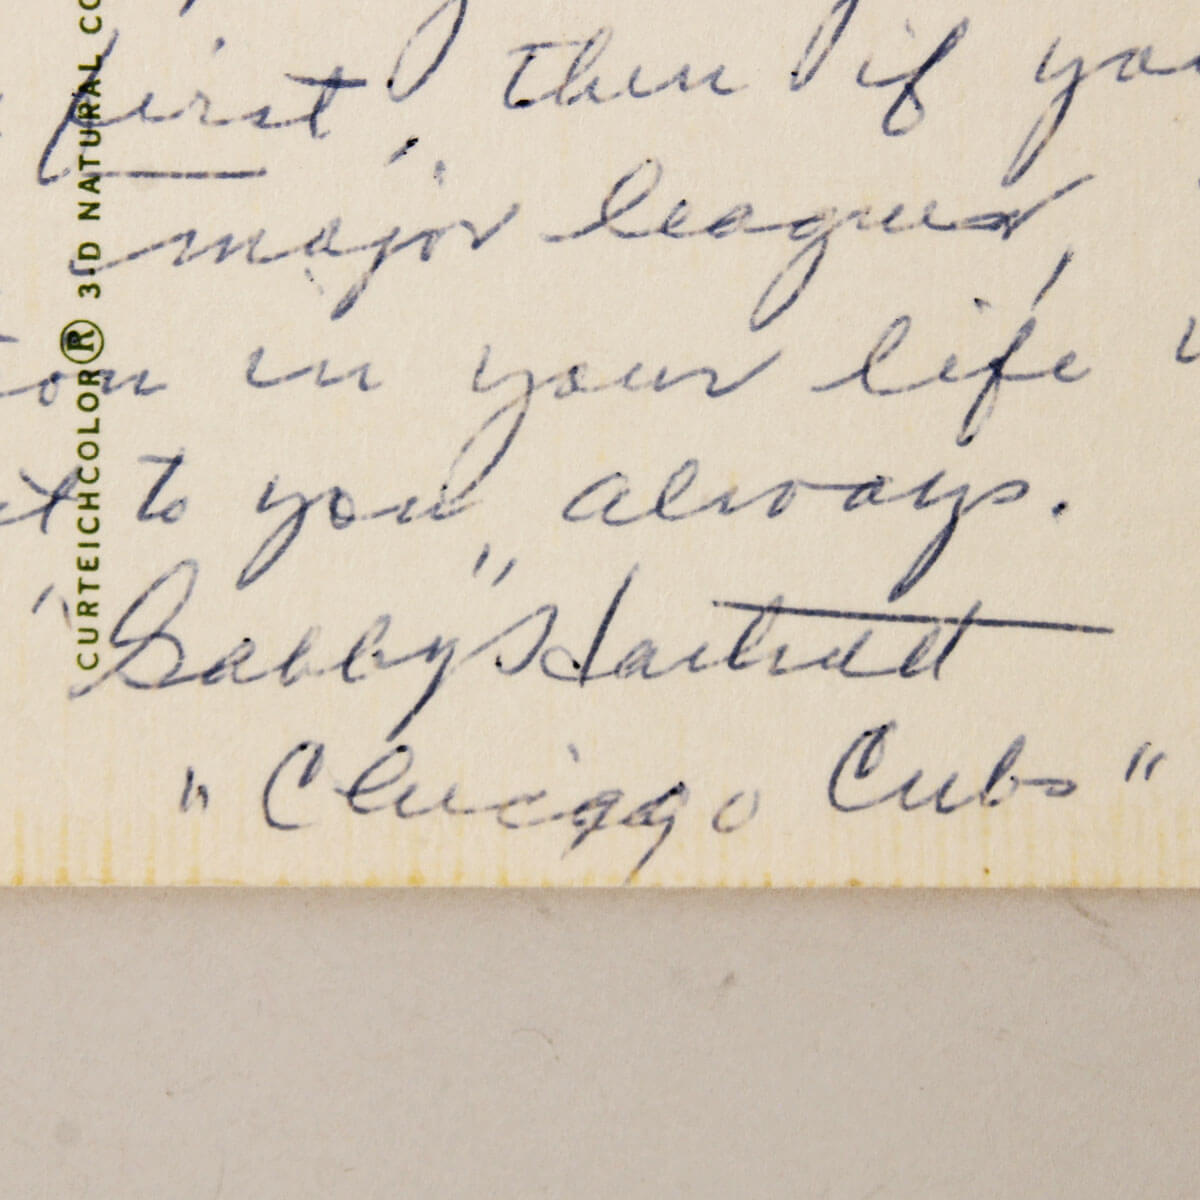 first, then if you
major leaguer,
ion in your life
to you always.
"Gabby" Hartnett
"Chicago Cubs"
CURTEICHCOLOR® 3-D NATURAL CO